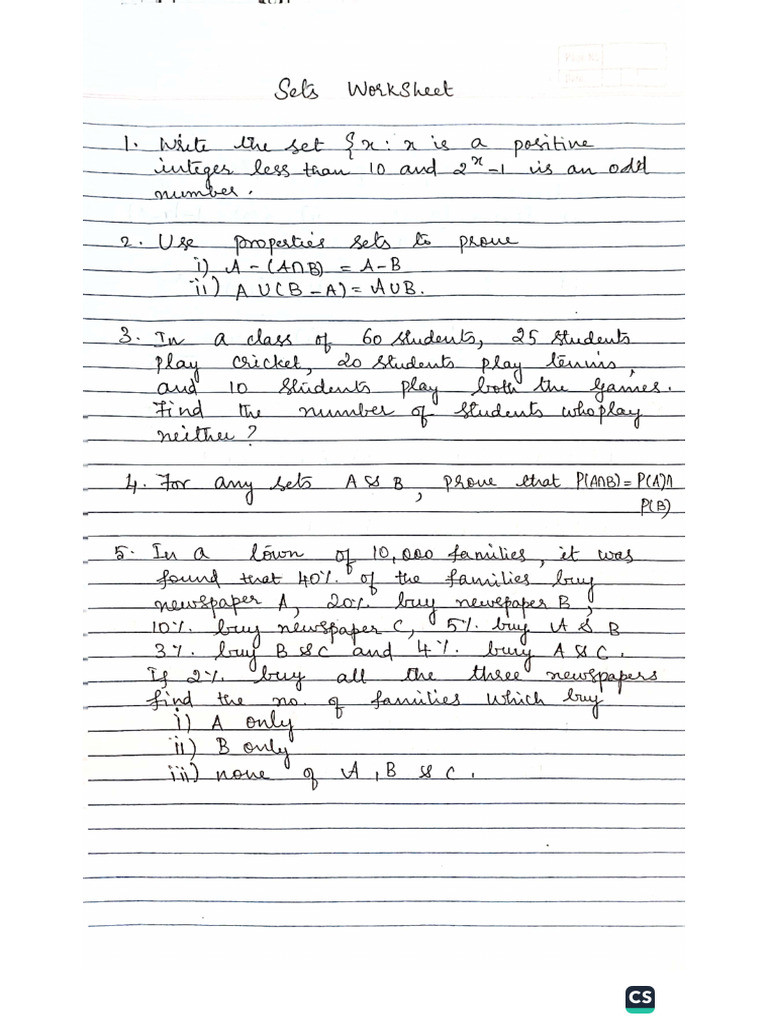 Sets Worksheet
1. Write the set {x : x is a positive
integer less than 10 and 2^x - 1 is an odd
number.
2. Use properties sets to prove
i) A - (A∩B) = A - B
ii) A ∪ (B - A) = A ∪ B.
3. In a class of 60 students, 25 students
play cricket, 20 students play tennis,
and 10 students play both the games.
Find the number of students who play
neither?
4. For any sets A & B, prove that P(A∩B) = P(A) ∩
P(B)
5. In a town of 10,000 families, it was
found that 40% of the families buy
newspaper A, 20% buy newspaper B,
10% buy newspaper C, 5% buy A & B
3% buy B & C and 4% buy A & C.
If 2% buy all the three newspapers
find the no. of families which buy
i) A only
ii) B only
iii) none of A, B & C.
CS